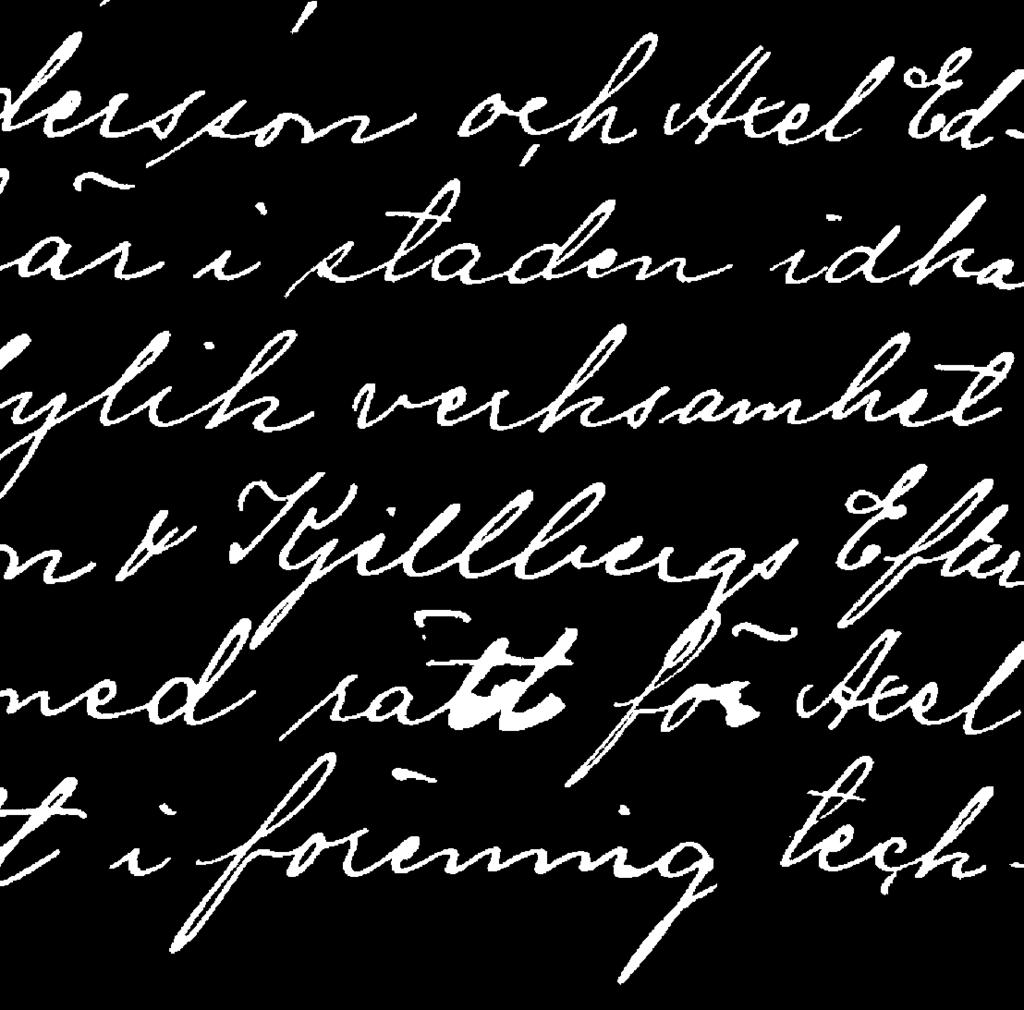 dersson och Axel Ed-
här i staden idka
dylik verksamhet
on & Kjellbergs Efter
med rätt för Axel
tt i förening teck-